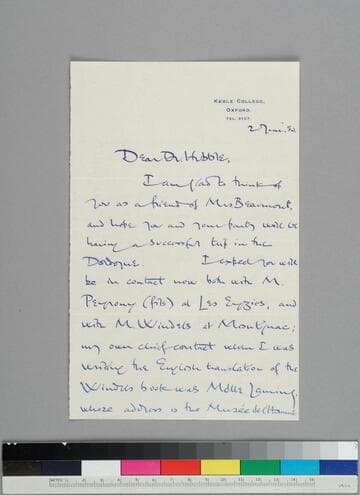 KEBLE COLLEGE,
OXFORD.
TEL. 2157.
2
Dear Dr. Hubble,
I am glad to think of
you as a friend of Mrs Beaumont,
and hope you and your party will be
having a successful trip in the
Dordogne. I expect you will
be in contact now both with M.
Peyrony (fils) at Les Eyzies, and
with M. Windels at Montignac;
my own chief contact when I was
writing the English translation of the
Windels book was Mdlle Laming,
whose address is the Musée de l'Homme